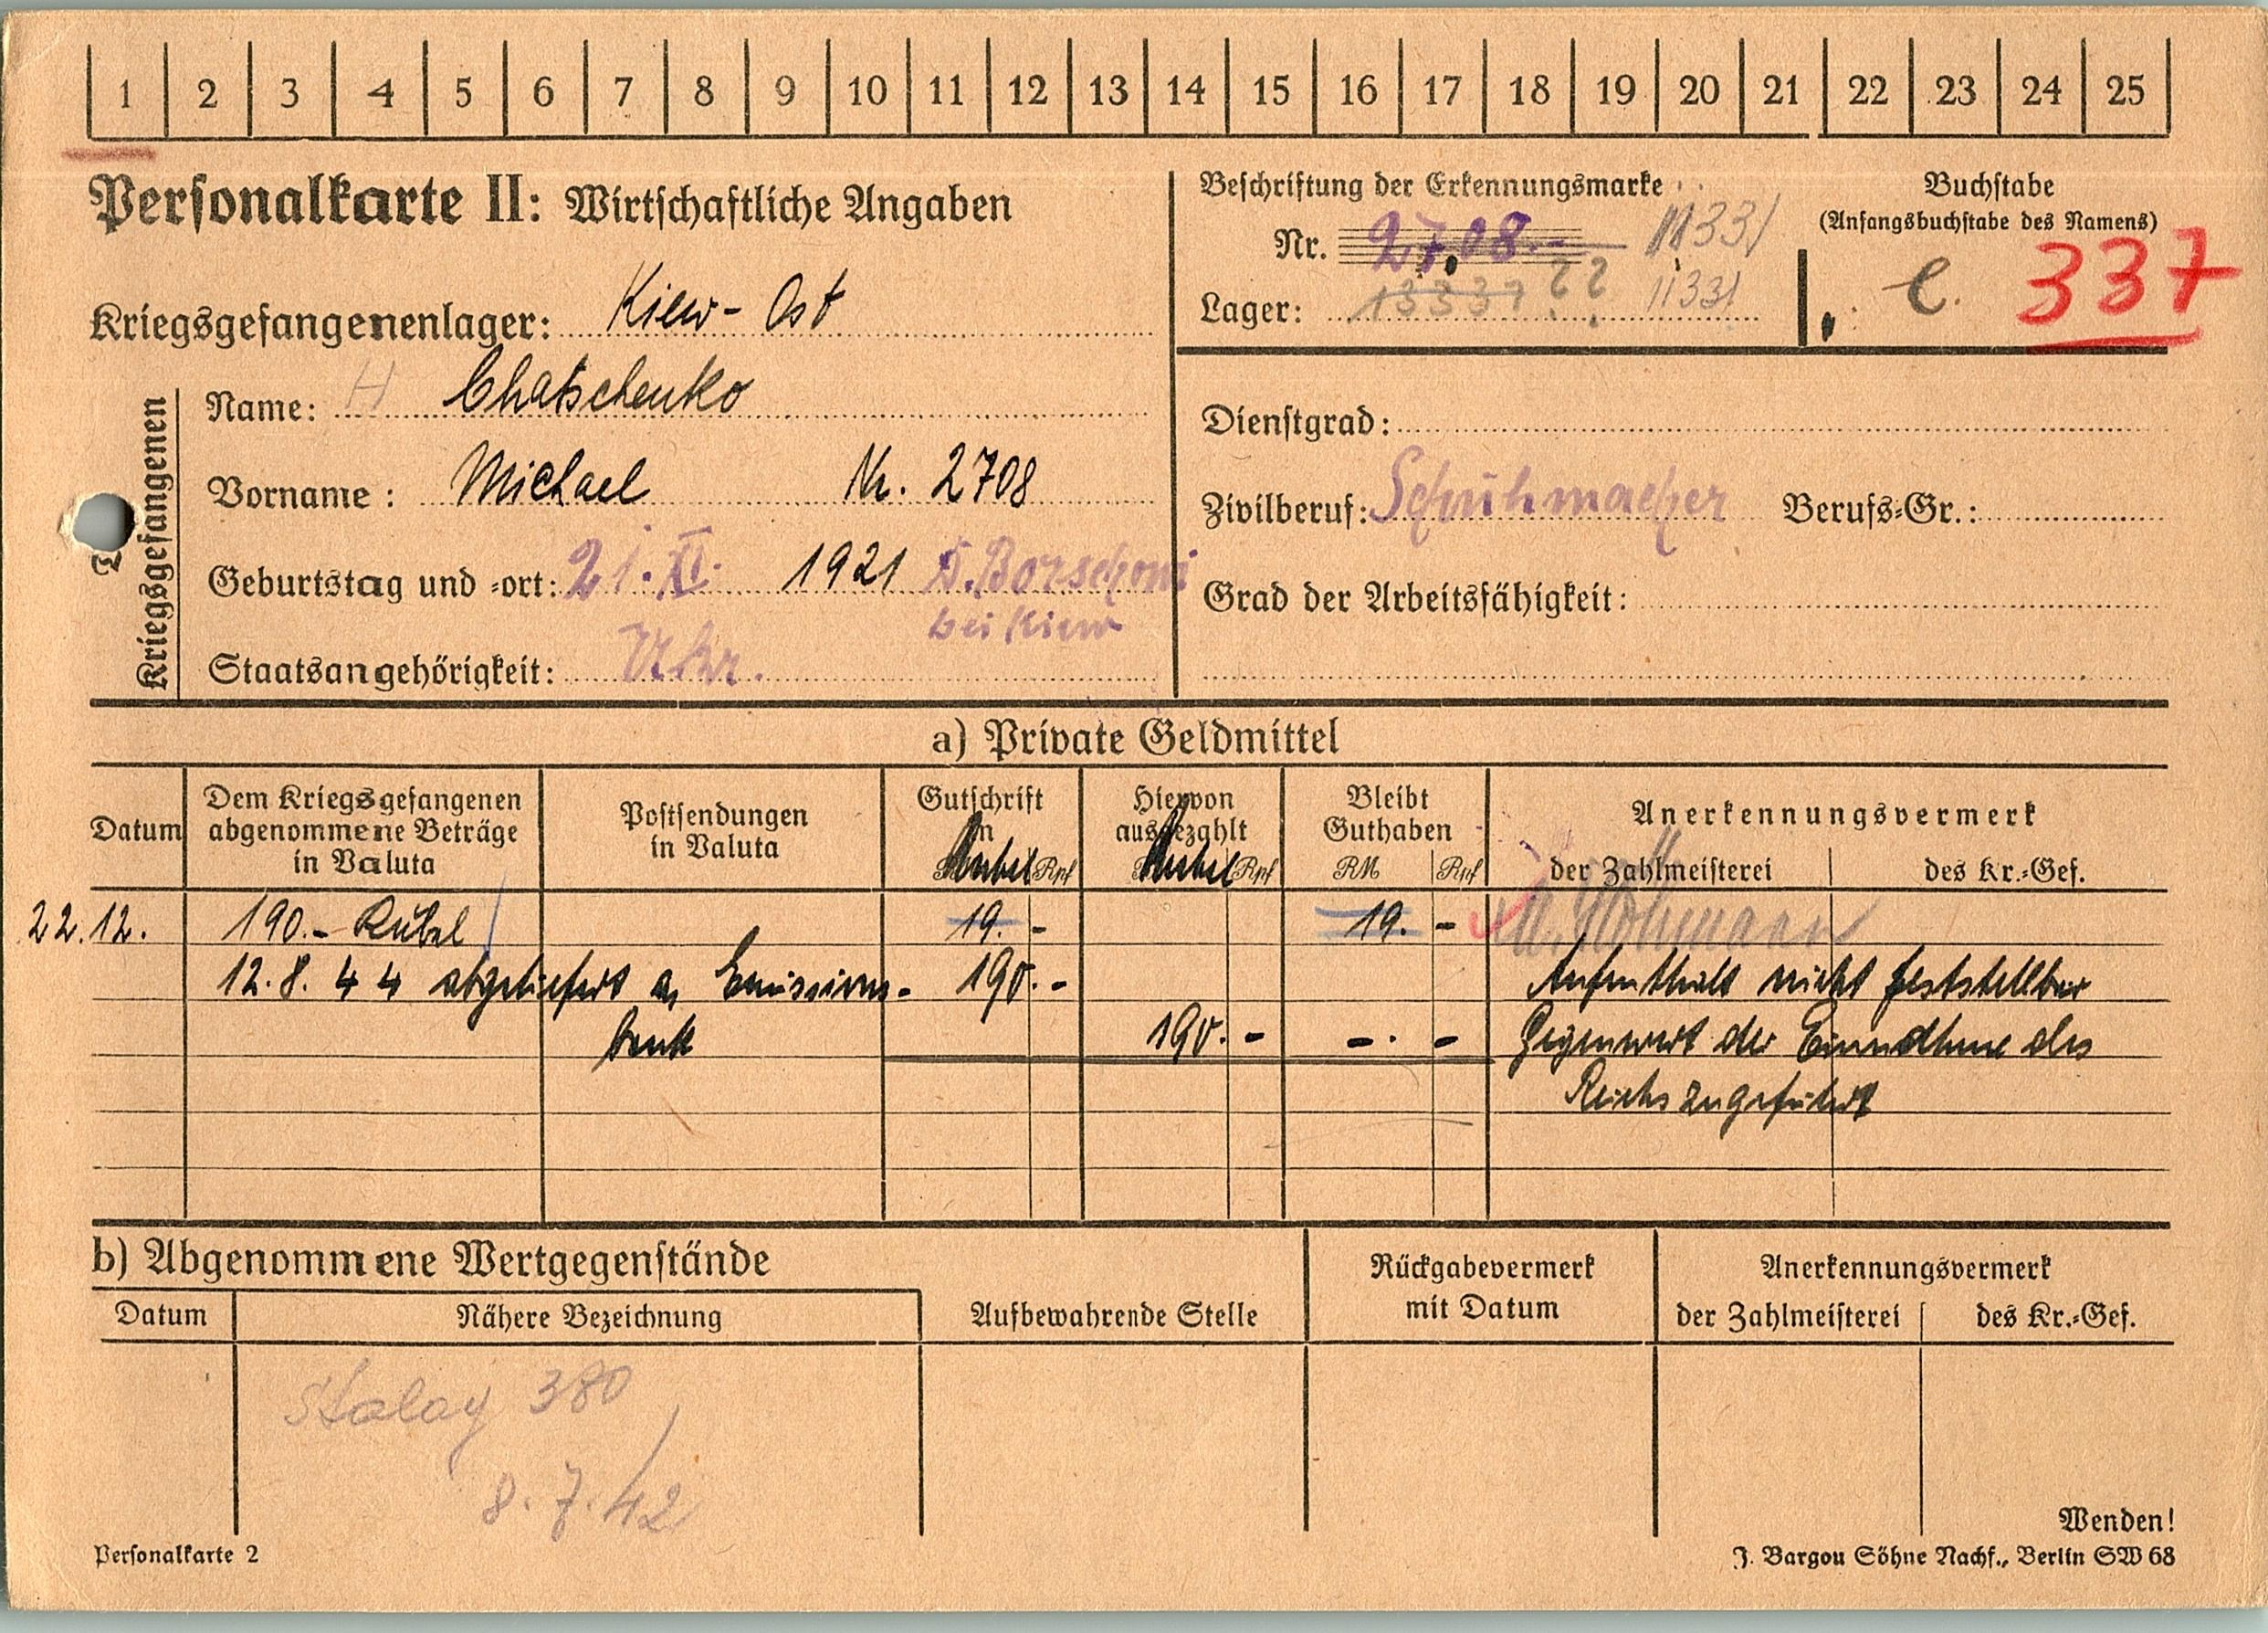 1 2 3 4 5 6 7 8 9 10 11 12 13 14 15 16 17 18 19 20 21 22 23 24 25
Personalkarte II: Wirtschaftliche Angaben
Beschriftung der Erkennungsmarke
Nr. 2708. 11331
Lager: 13337 22 11331
Buchstabe
(Anfangsbuchstabe des Namens)
C. 337
Kriegsgefangenenlager: Kiew-Ost
Kriegsgefangenen
Name: H Chatschenko
Vorname: Michael Nr. 2708
Geburtstag und =ort: 21. XI. 1921 D. Borschowi
bei Kiew
Staatsangehörigkeit: Ukr.
Dienstgrad:
Zivilberuf: Schuhmacher Berufs=Gr.:
Grad der Arbeitsfähigkeit:
a) Private Geldmittel
Datum
Dem Kriegsgefangenen
abgenommene Beträge
in Valuta
Postsendungen
in Valuta
Gutschrift
in
Rubel Rpf
Hiervon
ausgezahlt
Rubel Rpf
Bleibt
Guthaben
RM Rpf
Anerkennungsvermerk
der Zahlmeisterei des Kr.=Gef.
22.12. 190.- Rubel 19. - 19. -
12.8.44 abgeliefert a, Emissions- 190. - Aufenthalt nicht feststellbar
bank 190. - -. - Gegenwert der Einnahme des
Reichs zugeführt
b) Abgenommene Wertgegenstände
Datum Nähere Bezeichnung Aufbewahrende Stelle
Rückgabevermerk
mit Datum
Anerkennungsvermerk
der Zahlmeisterei des Kr.=Gef.
Stalag 380
8.7.42
Wenden!
Personalkarte 2
J. Bargou Söhne Nachf., Berlin SW 68